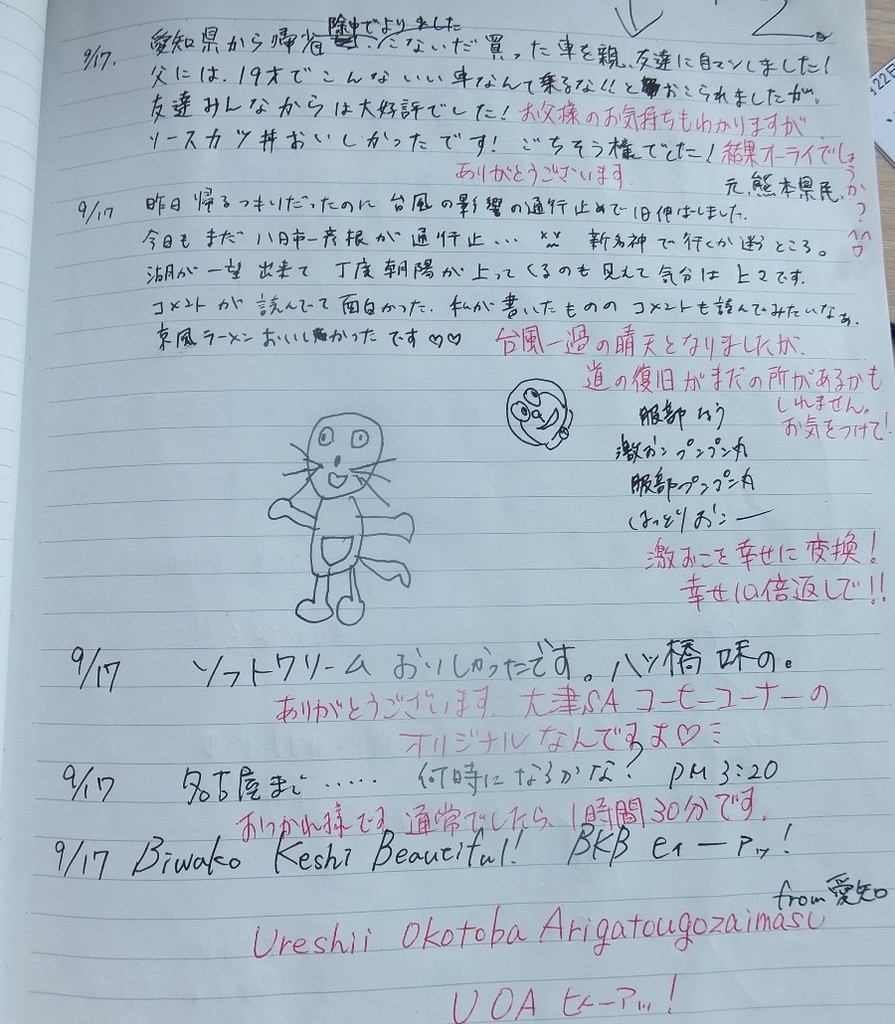 2.
9/17. 愛知県から帰省 途中でよりました こないだ買った車を親、友達に自マンしました!
父には、19才でこんないい車なんて乗るな!!とおこられましたが、
友達みんなからは大好評でした! お父様のお気持ちもわかりますが
ソースカツ丼おいしかったです! ごちそう様でした! 結果オーライでしょうか?
ありがとうございます
元、熊本県民
9/17 昨日帰るつもりだったのに台風の影響の通行止めで1日伸ばしました。
今日もまだ八日市ー彦根が通行止… 新名神で行くか迷うところ。
湖が一望出来て丁度朝陽が上ってくるのも見えて気分は上々です。
コメントが読んでて面白かった。私が書いたもののコメントも読んでみたいなぁ。
京風ラーメンおいしかったです♡♡ 台風一過の晴天となりましたが、
道の復旧がまだの所があるかも
しれません。
お気をつけて!
服部 なう
激おこプンプン丸
服部プンプン丸
はっとりおこー
激おこを幸せに変換!
幸せ10倍返しで!!
9/17 ソフトクリームおいしかったです。八ッ橋味の。
ありがとうございます。大津SAコーヒーコーナーの
オリジナルなんですよ♡
9/17 名古屋まで…… 何時になるかな? PM 3:20
おつかれ様です 通常でしたら、1時間30分です。
9/17 Biwako Keshi Beautiful! BKB ヒィーアッ!
from 愛知
Ureshii Okotoba Arigatougozaimasu
UOA ヒィーアッ!